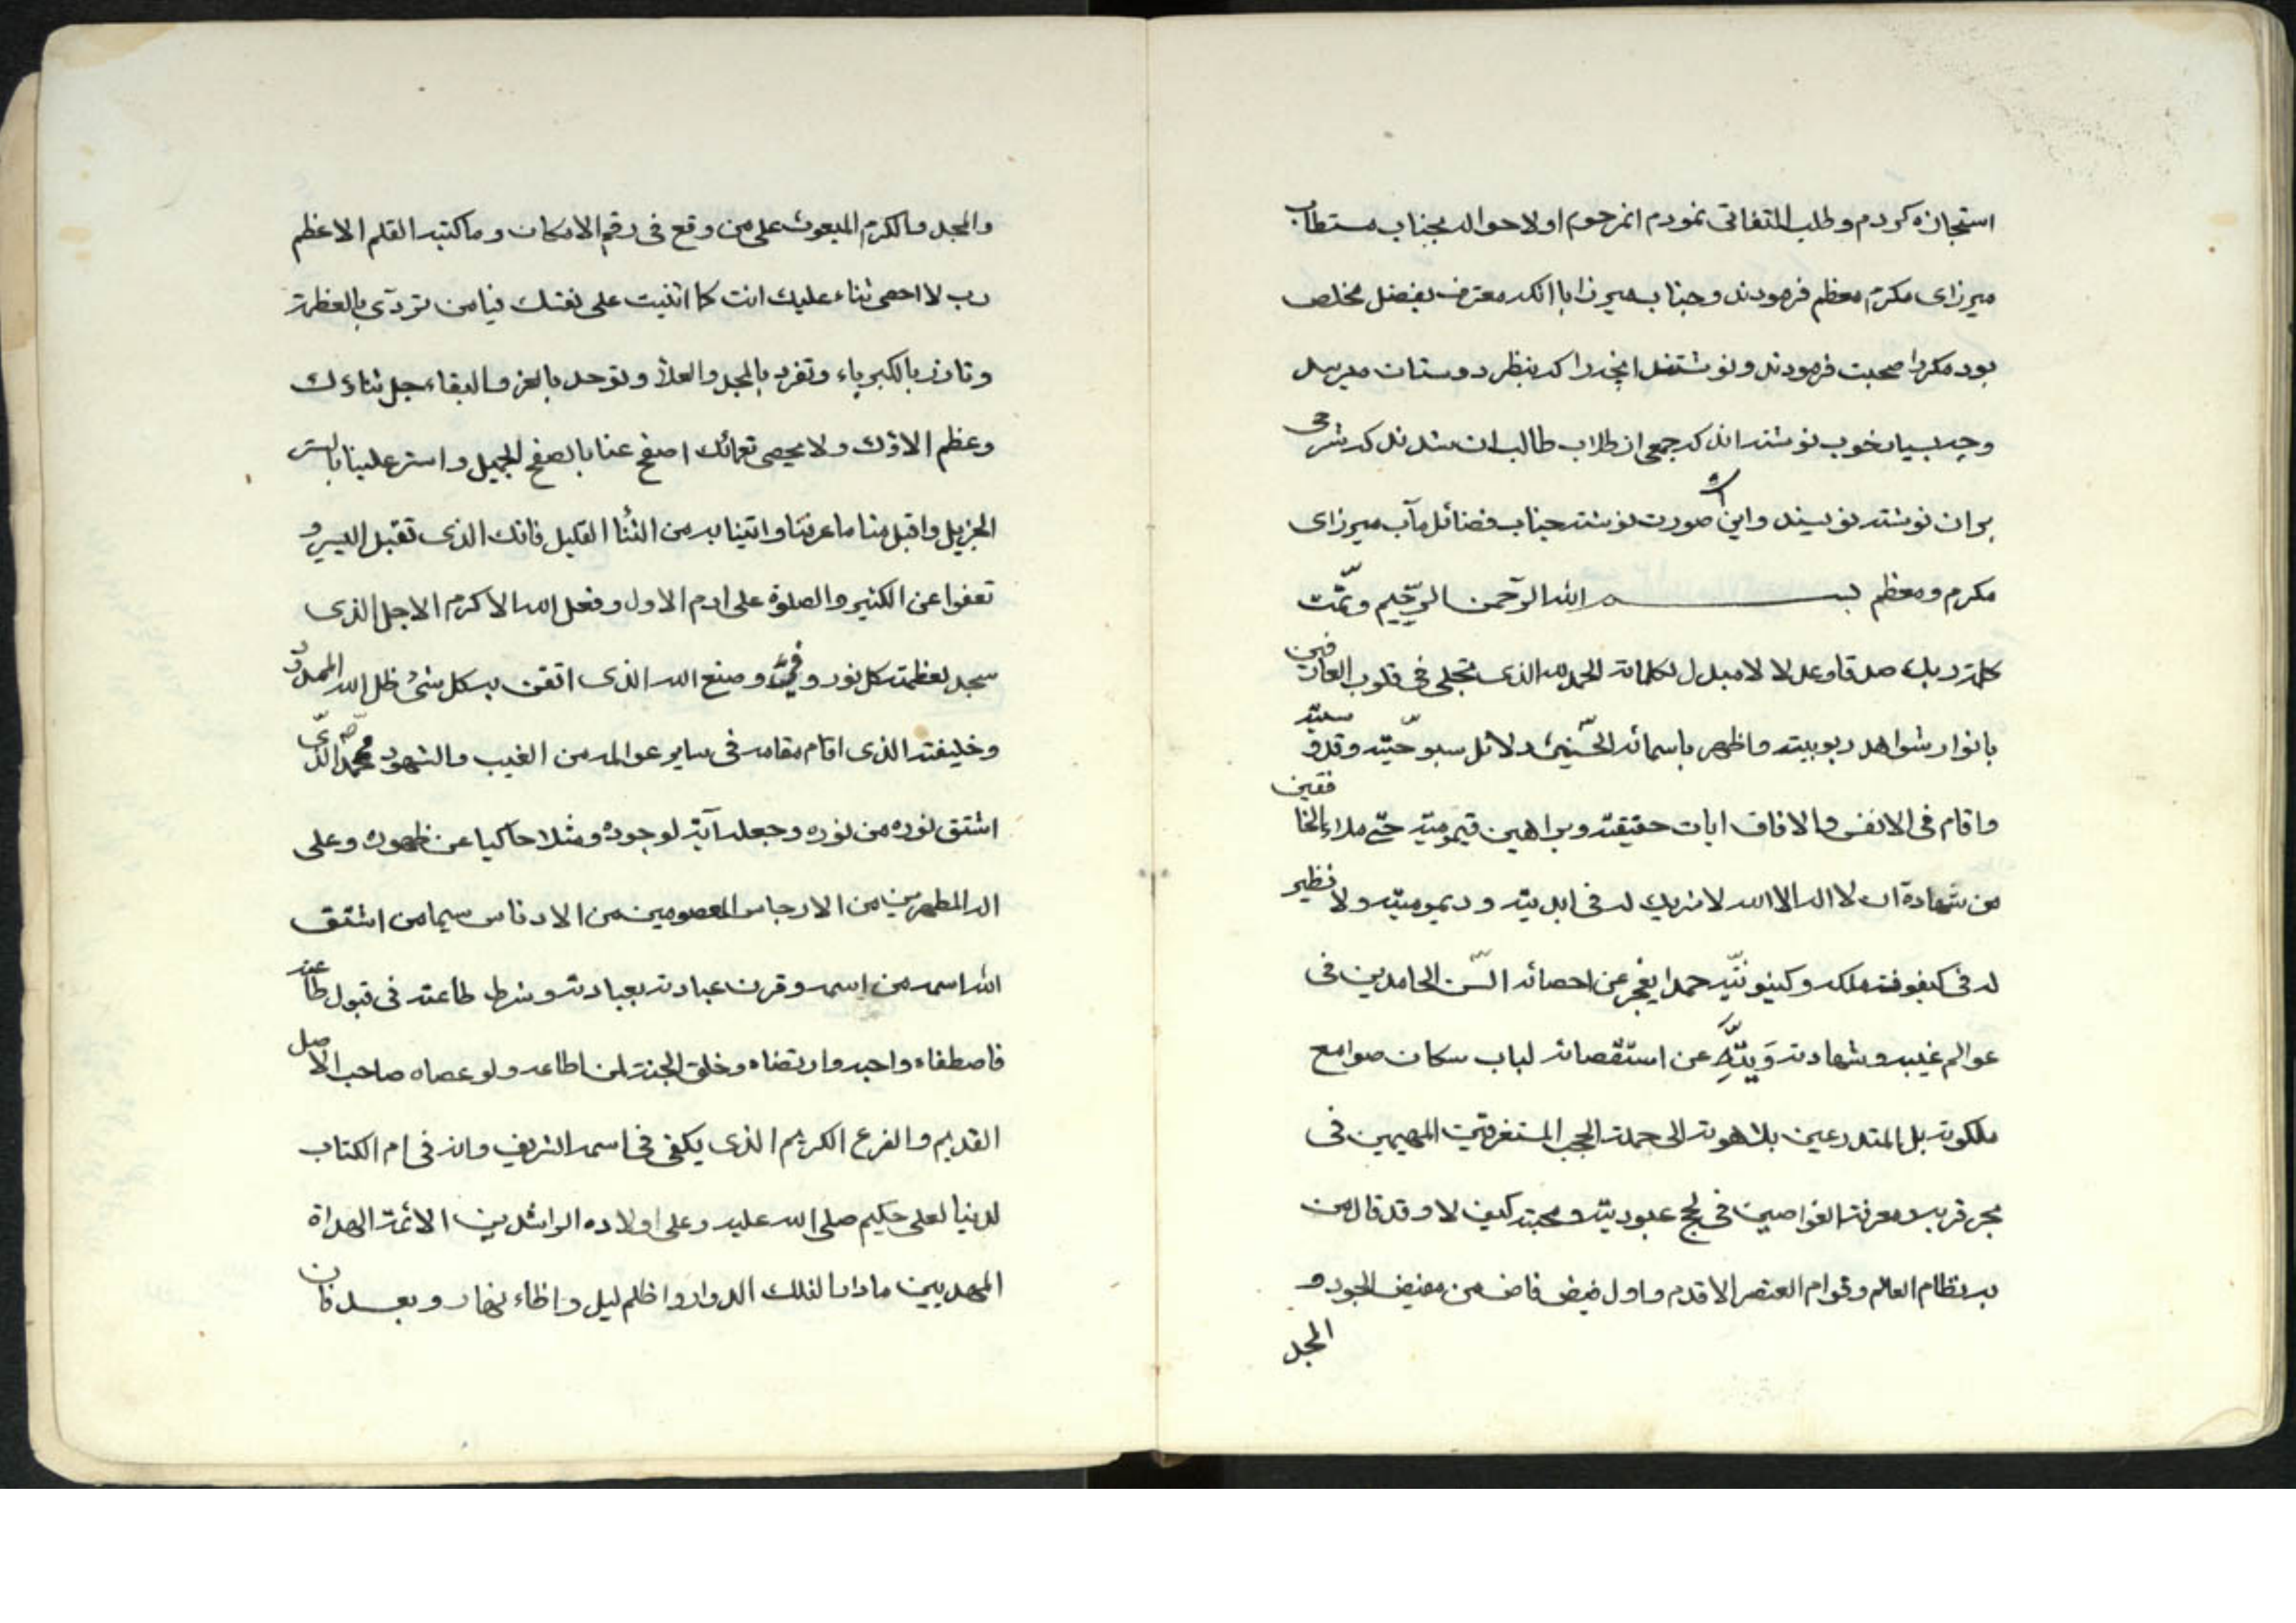 استجازه كردم وطلب التفاتى نمودم انمرحوم اولا حواله بجناب مستطاب
ميرزاى مكرم معظم فرمودند وجناب ميرزا با انكه معترف بفضل مخلص
بود مكررا صحبت فرمودند ونوشتند انچه را كه بنظر دوستان ميرسد
وچه بسيار خوب نوشته اند كه جمعى از طلاب طالب ان شدند كه شرحى
بر ان نوشته نويسند واين صورت نوشته جناب فضائل مآب ميرزاى
مكرم ومعظم بسم الله الرّحمن الرّحيم وتمّت
كلمة ربك صدقا وعدلا لا مبدل لكلماته الحمد لله الذى تجلى فى قلوب العارفين
بانوار شواهد ربوبيته واظهر باسمائه الحسنى دلائل سبوحيّته وقدوسيّته
واقام فى الانفس والافاق ايات حقيقته وبراهين قيموميّته حتى ملاء الخافقين
من شهادة ان لا اله الا الله لا شريك له فى ابديته وديموميّته ولا نظير
له فى كيفوفته ملكه وكينونيّته حمدا يعجز عن احصائه السن الحامدين فى
عوالم غيبه وشهادته عن استقصائه لباب سكان صوامع
ملكوته بل المتدرعين بلاهوته الى حملة الحجب المستغرقين المهيمين فى
بحر قربه ومعرفته الغواصين فى لجج عبوديته ومحبته كيف لا وقد قال من
به نظام العالم وقوام العنصر الاقدم واول فيض فاض من مفيض الجود و
المجد
والمجد والكرم المبعوث على من وقع فى رقم الامكان وما كتبه القلم الاعظم
رب لا احصى ثناء عليك انت كما اثنيت على نفسك فيا من تردّى بالعظمة
وتازر بالكبرياء وتفرد بالمجد والعلاء وتوحد بالعز والبقاء جل ثناءك
وعظم الاؤك ولا يحصى نعمائك اصفح عنا بالصفح الجميل واستر علينا بالستر
الجزيل واقبل منا ما عرفنا واتينا به من الثنا القليل فانك الذى تقبل اليسير و
تعفوا عن الكثير والصلوة على ادم الاول وفعل الله الاكرم الاجل الذى
سجد لعظمته كل نور وفىء وصنع الله الذى اتقن به كل شئ ظل الله الممدود
وخليفته الذى اقام مقامه فى ساير عوالمه من الغيب والشهود محمد ص الذى
اشتق نوره من نوره وجعله آية لوجوده ومثلا حاكيا عن ظهوره وعلى
اله المطهرين من الارجاس المعصومين من الادناس سيما من اشتق
الله اسمه من اسمه وقرن عبادته بعبادته وشرط طاعته فى قبول طاعته
فاصطفاه واحبه وارتضاه وخلق الجنة لمن اطاعه ولو عصاه صاحب الاصل
القديم والفرع الكريم الذى يكفى فى اسمه الشريف وانه فى ام الكتاب
لدينا لعلى حكيم صلى الله عليه وعلى اولاده الراشدين الائمة الهداة
المهديين ما دار الفلك الدوار واظلم ليل واضاء نهار وبعد فان